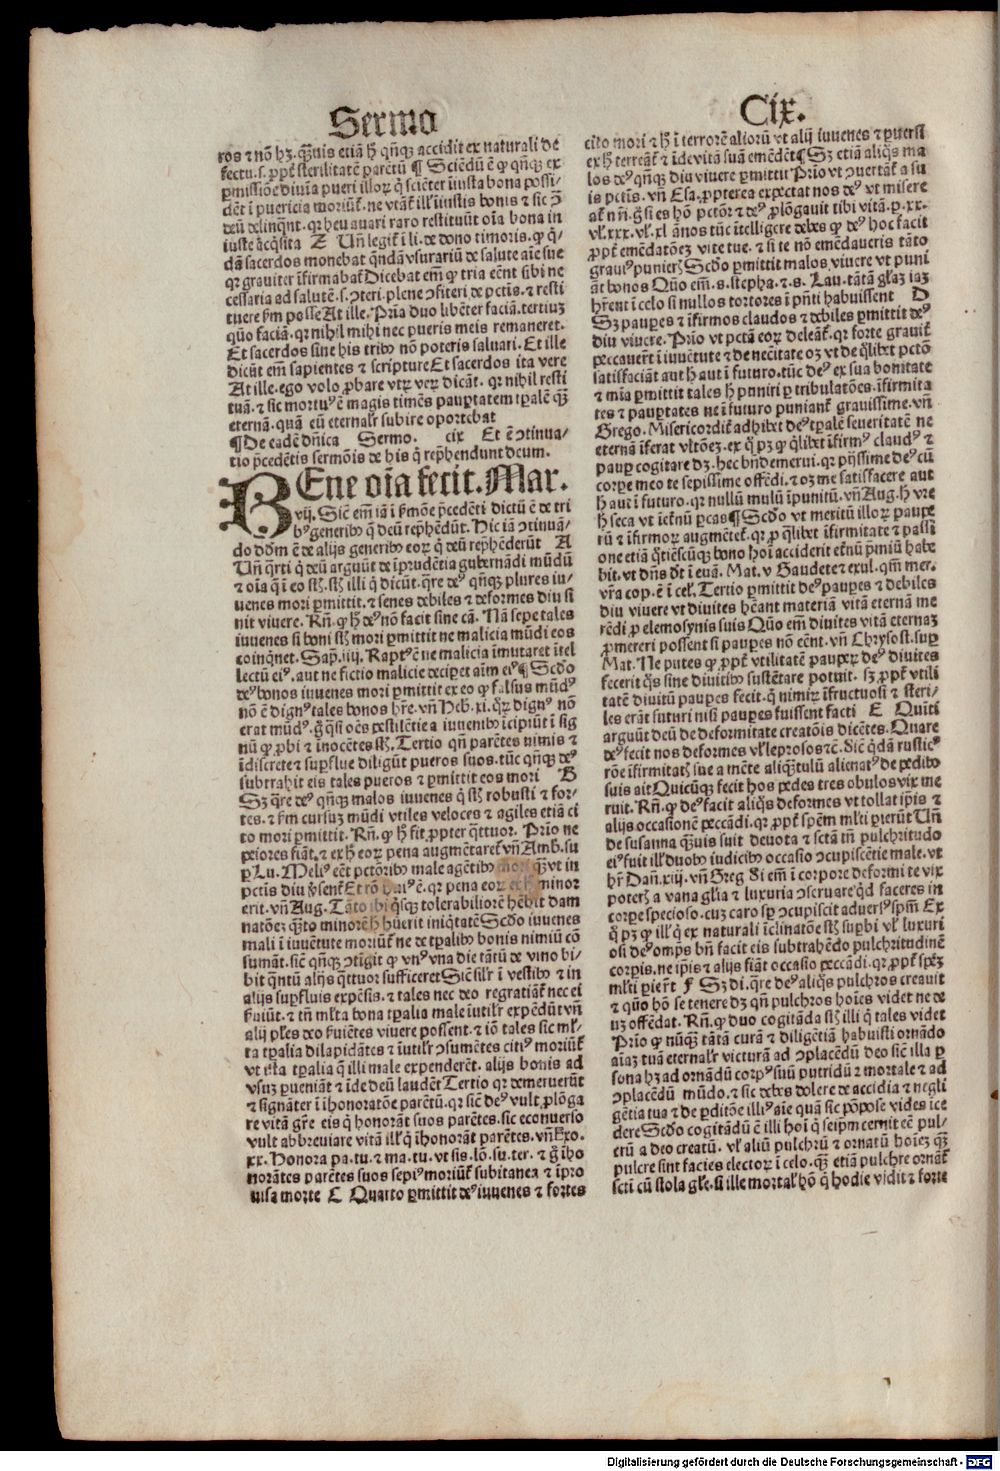 Sermo
Cix.
ros ⁊ nō hʒ. q̄uis etiā h̄ qn̄qꝫ accidit ex naturali de
fectu.s. ꝓpt̄ sterilitatē parētū ¶ Sciēdū ē ꝙ qn̄qꝫ ex
ꝑmissiōe diuīa pueri illoꝝ q̇ sciēter iniusta bona possi/
dēt ī puericia moriūt̄. ne vtāt̄ ill̓ iniustis bonis ⁊ sic ꝯ
deū delinq̄nt. qr heu auari raro restituūt oīa bona in
iuste acq̇sita Z Un̄ legit̄ ī li. de dono timoris. ꝙ q̇/
dā sacerdos monebat quēdā vsurariū de salute aīe sue
qr grauiter īfirmabat̄ Dicebat em̄ ꝙ tria eēnt sibi ne
cessaria ad salutē. s. ꝯteri. plene ꝯfiteri de pctīs. ⁊ resti
tuere ẜm posse At ille. Prīa duo libēter faciā. tertiuʒ
quō faciā. qr nihil mihi nec pueris meis remaneret.
Et sacerdos sine his tribꝰ nō poteris saluari. Et ille
dicūt em̄ sapientes ⁊ scripture Et sacerdos ita vere
At ille. ego volo ꝓbare vtꝝ veꝝ dicāt. qr nihil resti
tuā. ⁊ sic mortuꝰ ē magis timēs pauꝑtatem tꝑalē qꝫ
eternā. quā cū eternalr̄ subire oportebat
¶ De eadē dn̄ica Sermo. cix Et ē ꝯtinua/
tio p̄cedētis sermōis de his q̇ rep̄hendunt deum.
BEne oīa fecit. Mar.
vij. Sic̄ em̄ iā ī ẜmōe p̄cedēti dictū ē de tri
bꝰ generibꝰ q̇ deū rep̄hēdūt. Hic iā ꝯtinuā/
do dd̄m ē de alijs generibꝰ eoꝝ q̇ deū rep̄hēderūt A
Un̄ q̇rti q̇ deū arguūt de īprudētia gubernādi mūdū
⁊ oīa q̄ ī eo sꝉ. sꝉ illi q̇ dicūt. q̄re deꝰ qn̄qꝫ plures iu/
uenes mori ꝑmittit. ⁊ senes debiles ⁊ deformes diu si
nit viuere. Rn̄. ꝙ h̄ deꝰ nō facit sine cā. Nā sepe tales
iuuenes si boni sꝉ mori ꝑmittit ne malicia mūdi eos
coinq̇net. Sap̄. iiij. Raptꝰ ē ne malicia īmutaret ītel
lectū eiꝰ. aut ne fictio malicie deciꝑet aīm eiꝰ ¶ Scd̄o
deꝰ bonos iuuenes mori ꝑmittit ex eo ꝙ falsus mūdꝰ
nō ē dignꝰ tales bonos hr̄e. vn̄ Heb. xi. q̇bꝰ dignꝰ nō
erat mūdꝰ. ḡ q̄si oēs pestilētie a iuuenibꝰ īcipiūt ī sig
nū ꝙ ꝓbi ⁊ inocētes sꝉ. Tertio qn̄ parētes nimis ⁊
indiscrete ⁊ suꝑflue diligūt pueros suos. tūc qn̄qꝫ deꝰ
subtrahit eis tales pueros ⁊ ꝑmittit eos mori B
Sʒ q̄re deꝰ qn̄qꝫ malos iuuenes q̇ sꝉ robusti ⁊ for/
tes. ⁊ ẜm cursuʒ mūdi vtiles veloces ⁊ agiles etiā ci
to mori ꝑmittit. Rn̄. ꝙ h̄ fit ꝓpter q̄ttuor. Prīo ne
peiores fiāt. ⁊ ex h̄ eoꝝ pena augmētaret̄ vn̄ Amb. su
ꝑ Lu. Meliꝰ eēt pctōribꝰ male agētibꝰ mori qꝫ vt in
pctīs diu p̄sent̄ Et rō huiꝰ ē. qr pena eoꝝ ex h̄ minor
erit. vn̄ Aug. Tāto ibi q̇sqꝫ tolerabiliorē hēbit dam
natōeʒ q̄to minorē h̄ hūerit iniq̇tatē Scd̄o iuuenes
mali ī iuuētute moriūt̄ ne de tꝑalibꝰ bonis nimiū cō
sumāt. sic̄ qn̄qꝫ ꝯtīgit ꝙ vnꝰ vna die tātū de vino bi/
bit q̄ntū alijs q̄ttuor sufficeret Sic̄ sil̓r ī vestibꝰ ⁊ in
alijs suꝑfluis expēsis. ⁊ tales nec deo regratiāt̄ nec ei
ẜuiūt. ⁊ tn̄ ml̓ta bona tꝑalia male īutil̓r expēdūt vn̄
alij pl̓es deo ẜuiētes viuere possent. ⁊ iō tales sic ml̓/
ta tꝑalia dilapidātes ⁊ īutil̓r ꝯsumētes citiꝰ moriūt̄
vt ista tꝑalia q̄ illi male expenderēt. alijs bonis ad
vsuʒ ꝑueniāt ⁊ īde deū laudēt Tertio qr demeruerūt
⁊ signāter ī īhonoratōe parētū. qr sic̄ deꝰ vult ꝓlōga
re vitā gr̄e eis q̇ honorāt suos parētes. sic econuerso
vult abbreuiare vitā ill̓ q̇ īhonorāt parētes. vn̄ Exo.
xx. Honora pa. tu. ⁊ ma. tu. vt sis. lō. su. ter. ⁊ ḡ īho
norātes parētes suos sepiꝰ moriūt̄ subitanea ⁊ īpro
uisa morte C Quarto ꝑmittit deꝰ iuuenes ⁊ fortes
cito mori ⁊ h̄ ī terrorē alioꝝ vt alij iuuenes ⁊ ꝑuersi
ex h̄ terreāt̄ ⁊ īde vitā suā emēdēt ¶ Sʒ etiā aliq̇s ma
los deꝰ qn̄qꝫ diu viuere ꝑmittit Prīo vt ꝯuertāt̄ a su
is pctīs. vn̄ Esa. ꝓpterea expectat nos deꝰ vt misere
at̄ nr̄i. ḡ si es hō pctōr ⁊ deꝰ ꝓlōgauit tibi vitā. p. xx.
vl̓. xxx. vl̓. xl annos tūc ītelligere debes ꝙ deꝰ hoc facit
ꝓpt̄ emēdatōeʒ vite tue. ⁊ si te nō emēdaueris tāto
grauiꝰ punieris Scd̄o ꝑmittit malos viuere vt puni
āt bonos Quō em̄. s. stepha. ⁊. s. Lau. tātā gl̓iaʒ iaʒ
hr̄ent ī celo si nullos tortores ī pn̄ti habuissent D
Sʒ pauꝑes ⁊ īfirmos claudos ⁊ debiles ꝑmittit deꝰ
diu viuere. Prīo vt pctā eoꝝ deleāt̄. qr forte grauit̄
peccauer̄t ī iuuētute ⁊ de nec̄itate oʒ vt de q̇libet pctō
satisfaciāt aut h̄ aut ī futuro. tūc deꝰ ex sua bonitate
⁊ mīa ꝑmittit tales h̄ puniri ꝑ tribulatōes. īfirmita
tes ⁊ pauꝑtates ne ī futuro puniant̄ grauissime. vn̄
Grego. Misericordit̄ adhibet deꝰ tꝑalē seueritatē ne
eternā īferat vltōeʒ. ex q̇ pʒ ꝙ q̇libet īfirmꝰ claudꝰ ⁊
pauꝑ cogitare dʒ. hec bn̄ demerui. qr pijssime deꝰ cū
corꝑe meo te sepissime offēdi. ⁊ oʒ me satisfacere aut
h̄ aut ī futuro. qr nullū malū īpunitū. vn̄ Aug. h̄ vre
h̄ seca vt īetn̄ū ꝑcas ¶ Scd̄o vt meritū illoꝝ pauꝑe
rū ⁊ īfirmoꝝ augmētet̄. qr ꝓ q̇libet īfirmitate ⁊ passi
one etiā q̇tiēscūqꝫ bono hoī acciderit etn̄ū p̄miū habe
bit. vt dn̄s dt̄ ī euā. Mat. v Gaudete ⁊ exul. qm̄ mer.
vr̄a cop. ē ī cel̓. Tertio ꝑmittit deꝰ pauꝑes ⁊ debiles
diu viuere vt diuites hēant materiā vitā eternā me
rēdi ꝓ elemosynis suis Quō em̄ diuites vitā eternaʒ
ꝓmereri possent si pauꝑes nō eēnt. vn̄ Chrysost. suꝑ
Mat. Ne putes ꝙ ꝓpt̄ vtilitatē pauꝑꝝ deꝰ diuites
fecerit q̇s sine diuitibꝰ sustētare potuit. sʒ ꝓpt̄ vtili
tatē diuitū pauꝑes fecit. q̇ nimiꝝ īfructuosi ⁊ steri/
les erāt futuri nisi pauꝑes fuissent facti E Quīti
arguūt deū de deformitate creatōis dicētes. Quare
deꝰ fecit nos deformes vl̓ leprosos ⁊c̄. Sic̄ q̇dā rusticꝰ
rōe īfirmitatꝭ sue a mēte aliq̄tulū alienatꝰ de pedibꝰ
suis ait Quicūqꝫ fecit hos pedes tres obulos vix me
ruit. Rn̄. ꝙ deꝰ facit aliq̇s deformes vt tollat ip̄is ⁊
alijs occasionē peccādi. qr ꝓpt̄ spēm ml̓ti perierūt Un̄
de susanna q̄uis fuit deuota ⁊ sctā tn̄ pulchritudo
eiꝰ fuit ill̓ duobꝰ iudicibꝰ occasio ꝯcupiscētie male. vt
hr̄ Dan̄. xiij. vn̄ Greg Si em̄ ī corpore deformi te vix
poterꝭ a vana gl̓ia ⁊ luxuria ꝯseruare q̇d faceres in
corꝑe specioso. cuʒ caro sꝑ ꝯcupiscit aduersꝰ spm̄ Ex
q̇ pʒ ꝙ ill̓ q̇ ex naturali īclinatōe sꝉ suꝑbi vl̓ luxuri
osi deꝰ omꝑs bn̄ facit eis subtrahēdo pulchritudinē
corꝑis. ne ip̄is ⁊ alijs fiāt occasio peccādi. qr ꝓpt̄ spēʒ
ml̓ti pier̄t F Sʒ di. q̄re deꝰ aliq̇s pulchros creauit
⁊ quō hō se tenere dʒ qn̄ pulchros hoīes videt ne de
uʒ offēdat. Rn̄. ꝙ duo cogitāda sꝉ illi q̇ tales videt
Prīo ꝙ nūqꝫ tātā curā ⁊ diligētiā habuisti ornādo
aīaʒ tuā eternalr̄ victurā ad ꝯplacēdū deo sic̄ illa ꝑ
sona hʒ ad ornādū corpꝰ suū putridū ⁊ mortale ⁊ ad
ꝯplacēdū mūdo. ⁊ sic debes dolere de accidia ⁊ negli
gētia tua ⁊ de ꝑditōe illiꝰ aīe quā sic pōpose vides ice
dere Scd̄o cogitādū ē illi hoī q̇ seip̄m cernit eē pul/
crū a deo creatū. vl̓ aliū pulchrū ⁊ ornatū hoīeʒ qꝫ
pulcre sint facies electoꝝ ī celo. qꝫ etiā pulchre ornāt̄
scti cū stola gl̓e. si ille mortal̓ hō q̇ hodie vidit ⁊ forte
Digitalisierung gefördert durch die Deutsche Forschungsgemeinschaft - DFG